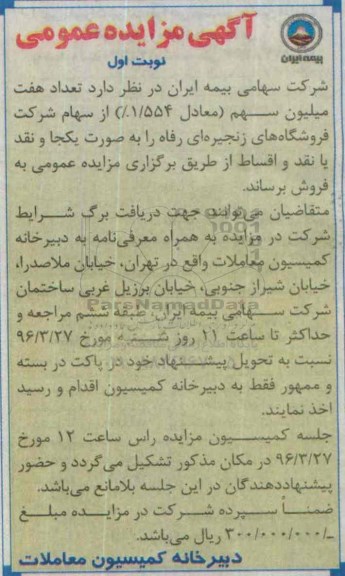 آگهی مزایده عمومی
بیمه ایران
نوبت اول
شرکت سهامی بیمه ایران در نظر دارد تعداد هفت
میلیون سهم (معادل ۱/۵۵۴٪) از سهام شرکت
فروشگاه‌های زنجیره‌ای رفاه را به صورت یکجا و نقد
یا نقد و اقساط از طریق برگزاری مزایده عمومی به
فروش برساند.
متقاضیان می‌توانند جهت دریافت برگ شرایط
شرکت در مزایده به همراه معرفی‌نامه به دبیرخانه
کمیسیون معاملات واقع در تهران، خیابان ملاصدرا،
خیابان شیراز جنوبی، خیابان برزیل غربی ساختمان
شرکت سهامی بیمه ایران، طبقه ششم مراجعه و
حداکثر تا ساعت ۱۱ روز شنبه مورخ ۹۶/۳/۲۷
نسبت به تحویل پیشنهاد خود در پاکت در بسته
و ممهور فقط به دبیرخانه کمیسیون اقدام و رسید
اخذ نمایند.
جلسه کمیسیون مزایده راس ساعت ۱۲ مورخ
۹۶/۳/۲۷ در مکان مذکور تشکیل می‌گردد و حضور
پیشنهاددهندگان در این جلسه بلامانع می‌باشد.
ضمناً سپرده شرکت در مزایده مبلغ
۳۰۰/۰۰۰/۰۰۰/ـ ریال می‌باشد.
دبیرخانه کمیسیون معاملات
ParsNamadData